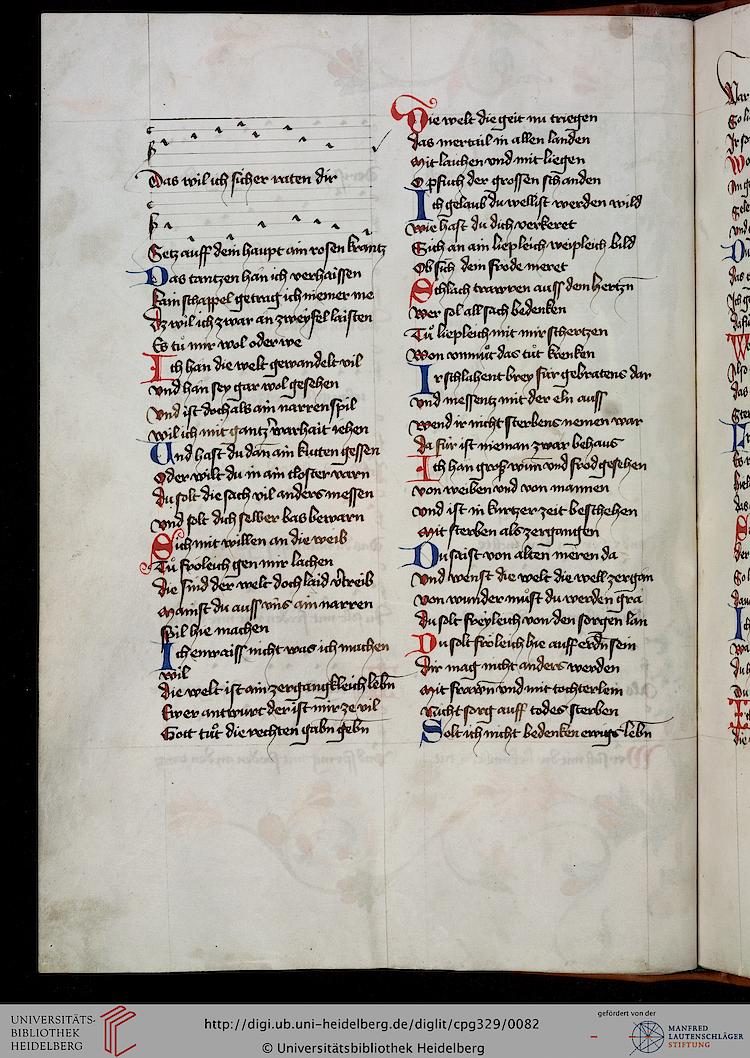 Das wil ich sicher raten dir
Setz auff dein haupt ain rosen krantz
Das tantzen han ich verhaissen
kain schappel getrag ich niemer me
Dz wil ich zwar an zweyfel laisten
Es tů mir wol oder we
Ich han die welt gewandelt vil
vnd han sey gar wol gesehen
Vnd ist doch als ain narrenspil
wil ich mit gantz warhait iehen
Vnd hast du dan ain kutten gessen
Oder wilt du in ain closter varn
Du solt die sach vil anders messen
vnd solt dich selber bas bewarn
Sich mit willen an die weib
Tů froleich gen mir lachen
die sind der welt doch laid vtreib
mainst du auss vns ain narren
spil hie machen
Ich enwaiss nicht was ich machen
wil
die welt ist ain zergangkleich lebn
Ewer antwurt der ist mir ze vil
Gott tůt die rechten gabn gebn
Die welt die geit nu triegen
das mertail in allen landen
Mit lachen vnd mit liegen
O pfuch der grossen schanden
Ich gelaub du wellist werden wild
wie hast du dich verkeret
Sich an ain liepleich weipleich bild
Ob sich dein frode meret
Schlach trawren auss dem hertzn
wer sol all sach bedenken
Tů liepleich mit mir schertzen
Won vnmůt das tůt krenken
Ir schlahent brey für gebratens dar
vnd messentz mit der eln auss
wend ir nicht sterbens nemen war
da für ist nieman zwar behaus
Ich han gross wunn vnd frod gesehen
von weiben vnd von mannen
vnd ist in kurtzer zeit beschehen
Mit sterben als zergangen
Du saist von alten meren da
vnd wenst die welt die well zergan
von wunder můst du werden gra
du solt freyleich von den sorgen lan
Du solt froleich hie auff erdn sein
dir mag nicht anders werden
Mit frawn vnd mit tochterlein
Nicht sorg auff todes sterben
Solt ich nicht bedenken ewigs lebn
UNIVERSITÄTS-
BIBLIOTHEK
HEIDELBERG
http://digi.ub.uni-heidelberg.de/diglit/cpg329/0082
© Universitätsbibliothek Heidelberg
gefördert von der
MANFRED
LAUTENSCHLÄGER
STIFTUNG